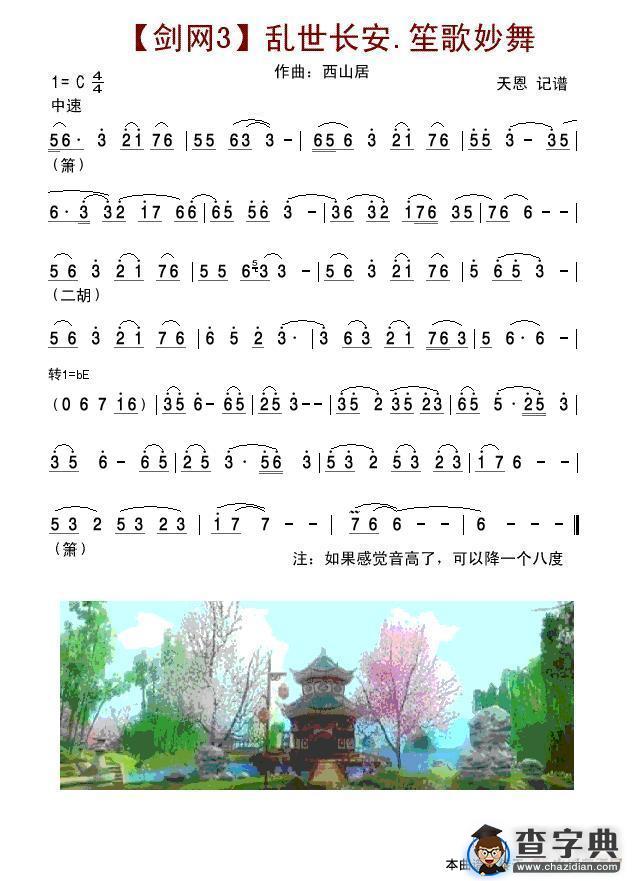 【剑网3】乱世长安.笙歌妙舞
作曲：西山居
1= C 4/4
天恩 记谱
中速
56· 3 21 76 | 55 633 - | 656 3 21 76 | 55 3 - 35 |
(箫)
6·3 32 17 66 | 65 56 3 - | 36 32 176 35 | 76 6 - - |
56 3 21 76 | 55 6 5 33 - | 56 3 21 76 | 5 65 3 - |
(二胡)
56 3 21 76 | 6 5 2 3· | 3 63 21 763 | 5 6·6 - |
转1=bE
(0 6 7 16) | 35 6- 65 | 25 3-- | 35 2 35 23 | 65 5·25 3 |
35 6- 65 | 25 3·56 3 | 53 2 53 23 | 17 6 - - |
53 2 53 23 | 17 7 - - | 7 6 6 - - | 6 - - - ‖
(箫)
注：如果感觉音高了，可以降一个八度
查字典
www.chazidian.com
本曲